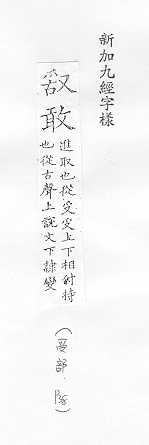 新加九經字樣
𠭖敢
進取也從𠬪𠬪上下相付持
也從古聲上說文下隸變
(𠬪部